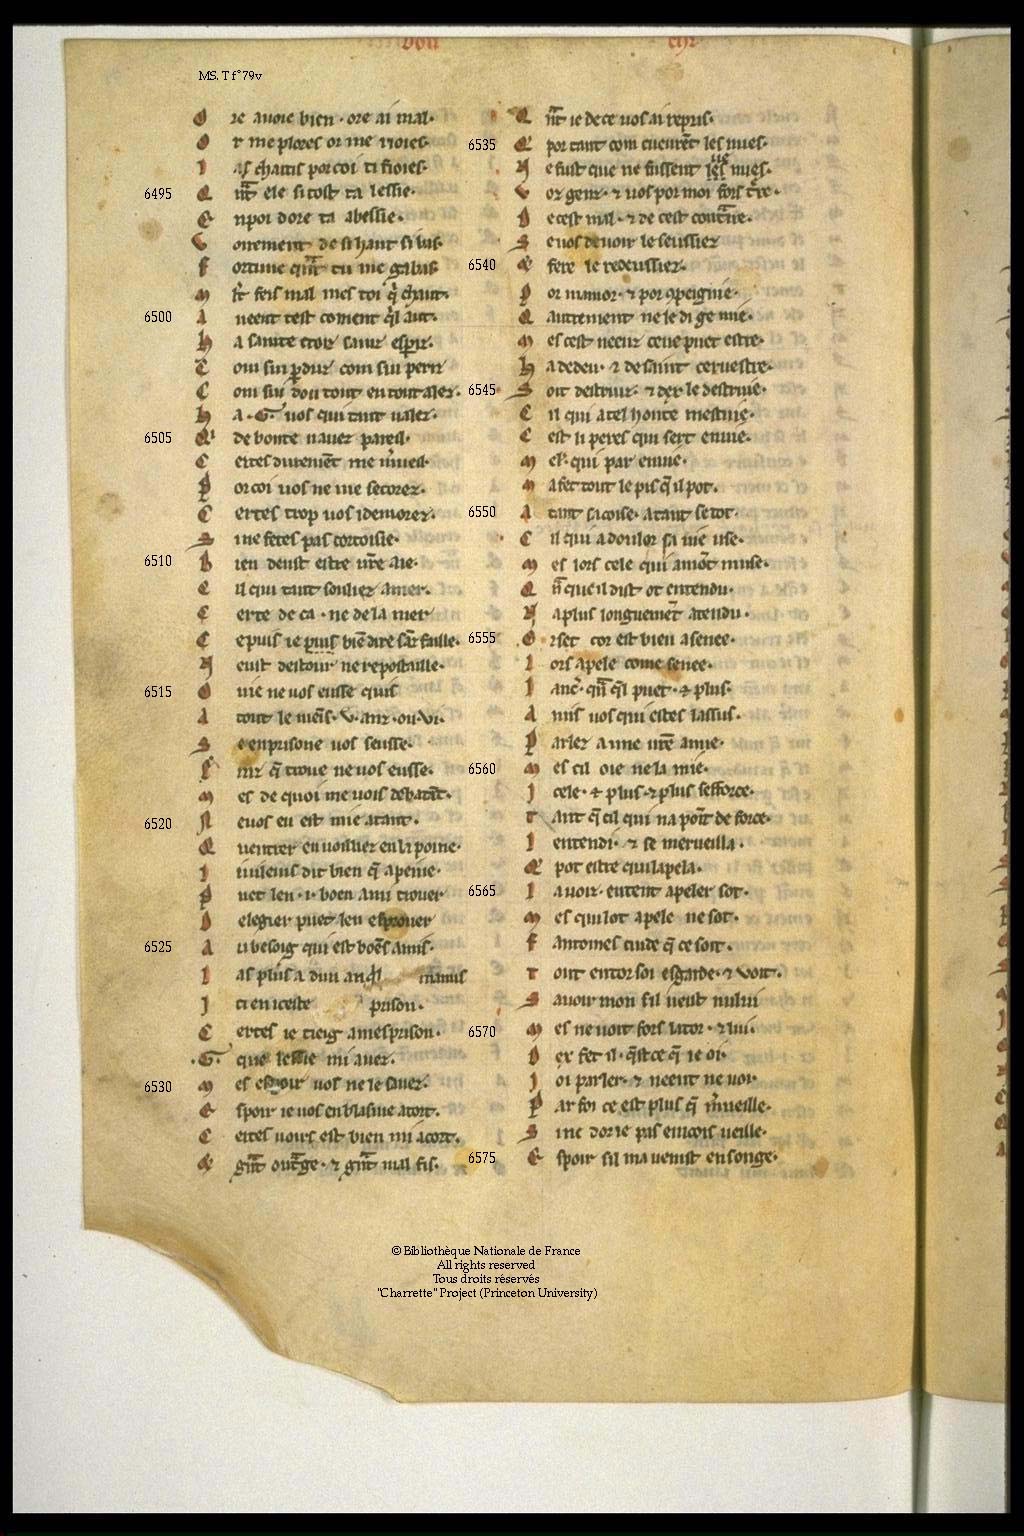 von
chr
MS. T f° 79v
O re auoie bien · ore ai mal ·
O r me plores or me uoies ·
l as chaitis por coi ti fioies ·
6495
Q ñt ele si tost ta lessie ·
E n poi dore ta abessie ·
V oirement de si haut si bas
F ortune q̃nt tu me gabas
M l't feis mal mes toi q̃ chaut ·
6500
A neent test coment q̃l aut ·
h a sainte croiz sainz esperiz
C om sui p̱duz com sui periz
C om sui dou tout en tout alez ·
h a · G · uos qui tant ualez ·
6505
Q' de bonte nauez pareil ·
C ertes durem̃t me m̃ueil ·
P or coi uos ne me secorez ·
C ertes trop uos i demorez ·
S i ne fetes pas cortoisie ·
6510
b ien deust estre ur̃e aie ·
C il qui tant souliez amer ·
C erte de ca · ne de la mer
C e puis ie puis biẽ dire sãz faille ·
N eust destour ne repostaille ·
6515
O u ie ne uos eusse quis
A tout le meĩs · v · anz · ou · vi ·
S e en prisone uos seusse ·
A inz q̃ troue ne uos eusse ·
M es de quoi me uois debatãt ·
6520
N e uos en est mie atant ·
Q ue entrer en uousissiez en la poine ·
l i uileins dit bien q̃ a peine ·
P uet len · i · boen ami trouer
D e legier puet len esprouer
6525
A u besoig qui est boẽs amis ·
l as plus a dun an q̃l mamis
I ci en iceste prison ·
C ertes ie tieig a mesprison ·
· G · que lessie mi auez ·
6530
M es espoir uos ne le sauez ·
E spoir ie uos en blasme a tort ·
C ertes uoirs est bien mi acort ·
Q' g̃nt out̃ge · ⁊ g̃nt mal fis ·
Q ñt ie de ce uos ai repris ·
6535
Q' por tant com cueurẽt les nues ·
N e fust que ne fussent les nues ·
V oz genz · ⁊ uos por moi fors t̃re ·
D e cest mal · ⁊ de cest cont̃ire ·
S e uos de uoir le seussiez
6540
Q' fere le redeussiez ·
P or mamor · ⁊ por ꝯpeignie ·
Q autrement ne le di ge mie ·
M es cest neenz ce ne puet estre ·
h a de deu · ⁊ de saint ceruestre ·
6545
S oit destruiz · ⁊ dex le destruie ·
C il qui a tel honte mestuie ·
C est li peres qui sert enuie ·
M el · qui par enuie ·
M a fet tout le pis q̃ il pot ·
6550
A tant sacoise · atant se tot ·
C il qui a doulor sa uie use ·
M es lors cele qui amõt muse ·
Q ñ que il dist ot entendu ·
N a plus longuem̃t atendu ·
6555
O r set cor est bien asenee ·
l ors apele come senee ·
l anc̃ · q̃n q̃l puet · ⁊ plus ·
A mis uos qui estes lassus ·
P arlez a une ur̃e amie ·
6560
M es cil oie ne la mie ·
I cele · ⁊ plus ⁊ plus sefforce ·
T ant q̃ cil qui na poĩt de force ·
l entendi · ⁊ se merueilla ·
Q' pot estre qui lapela ·
6565
l a uoiz · entent apeler sot ·
M es qui lot apele ne sot ·
F antosmes cuide q̃ ce soit ·
T out entor soi esgarde · ⁊ voit ·
S auoir mon sil uenist nului
6570
M es ne uoit fors la tor · ⁊ lui ·
D ex fet il · q̃st ce q̃ ie oi ·
I oi parler · ⁊ neent ne uoi ·
P ar foi ce est plus q̃ m̃ueille ·
S i ne dorie pas encois ueille ·
6575
E spoir sil ma uenist en songe ·
© Bibliothèque Nationale de France
All rights reserved
Tous droits réservés
"Charrette" Project (Princeton University)